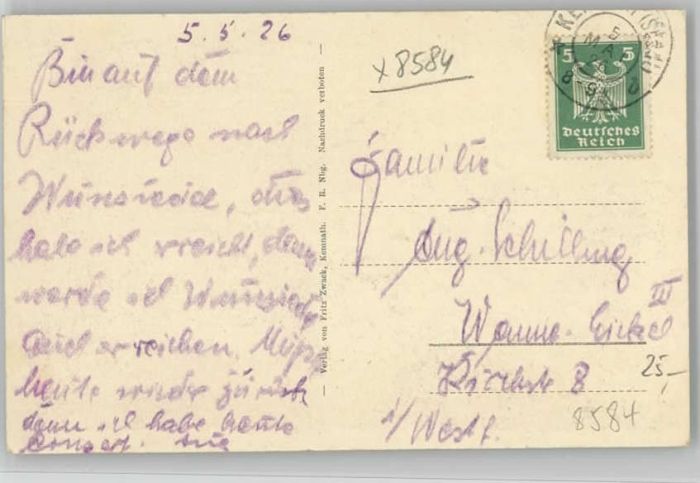 5.5.26
Bin auf dem
Rückwege nach
Wunsiedel, das
habe ich erreicht, dann
werde ich Wunsiedel
auch erreichen. Muß
heute wieder zurück
denn ich habe heute
Konzert.
Verlag von Fritz Zwack, Kemnath. F. R. Nbg. Nachdruck verboten
x 8584
5 5
Deutsches
Reich
Familie
Aug. Schilling
Wanne-Eickel III
Kirchstr 8
i/Westf.
25,-
8584